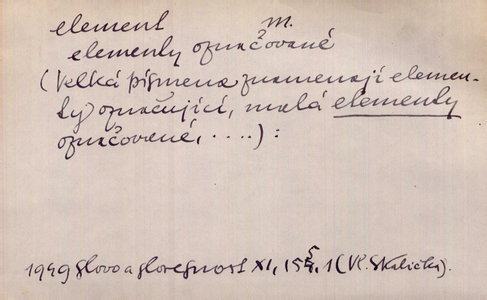 element m.
elementy označované
(Velká písmena znamenají elemen-
ty označující, malá elementy
označované, ....) :
1949 Slovo a slovesnost XI, 155, 1 (Vl. Skalička).